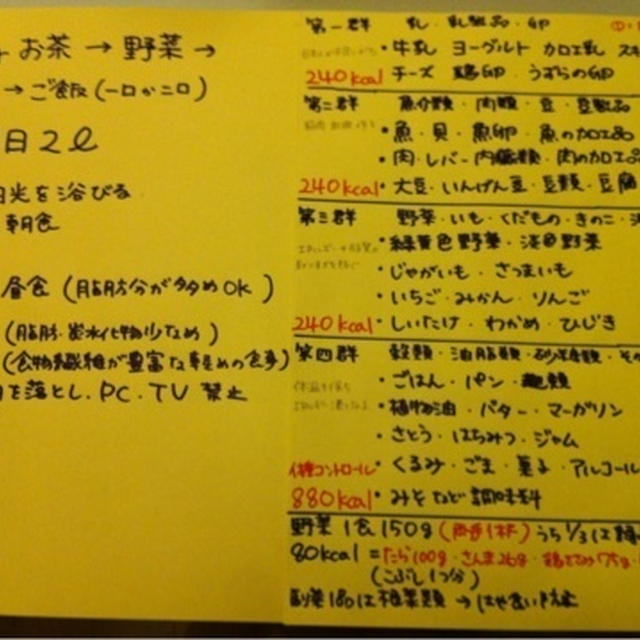 お茶 → 野菜 →
→ ご飯 (一口か二口)
日 2ℓ
日光を浴びる
朝食
昼食 (脂肪分が多めOK)
(脂肪・炭水化物少なめ)
(食物繊維が豊富な軽めの食事)
を落とし、PC、TV 禁止
第一群 乳・乳製品・卵
・牛乳 ヨーグルト カロエ乳
240kcal チーズ 鶏卵 うずらの卵
第二群 魚介類・肉類・豆・豆製品
・魚・貝・魚卵・魚の加工品
・肉・レバー・内臓類・肉の加工品
240kcal ・大豆・いんげん豆・豆類・豆腐
第三群 野菜・いも・くだもの・きのこ・
・緑黄色野菜・淡色野菜
・じゃがいも・さつまいも
・いちご・みかん・りんご
240kcal ・しいたけ・わかめ・ひじき
第四群 穀類・油脂類・砂糖類・その
・ごはん・パン・麺類
・植物油・バター・マーガリン
・さとう・はちみつ・ジャム
体重コントロール ・くるみ・ごま・菓子・アルコール
880kcal ・みそなど調味料
野菜1食150g (両手1杯) うち1/3は緑
80kcal = たら100g・さんま26g・鶏ささみ75g
(こぶし1つ分)
副菜1品は根菜類 → はや食い防止